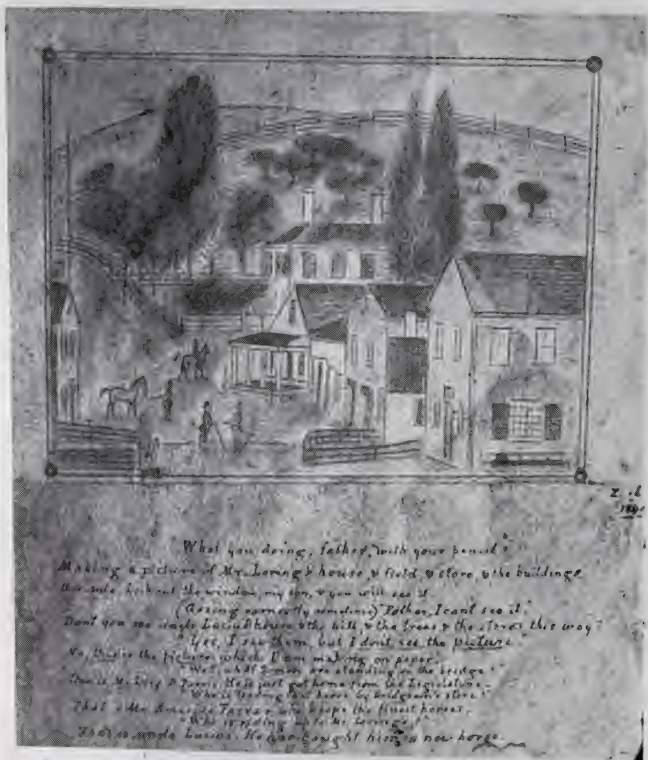 "What you doing, father, with your pencil?"
Making a picture of Mr. Loring's house, & field, & store, & the buildings
this side. Look out the window, my son, & you will see it.
(Gazing earnestly sometime) "Father, I cant see it."
Dont you see uncle Lucius' house & the hill & the trees & the stores this way?
"Yes, I see them, but I dont see the picture."
No, this is the picture, which I am making on paper.
"What 2 men are standing on the bridge?"
One is Mr. He is just got home from the Legislature.
"Who is leading that horse by store?"
That is Mr. Farrar who keeps the finest horses.
"Who is riding up to Mr. Loring's?"
That is uncle Lucius. He has bought him a new horse.